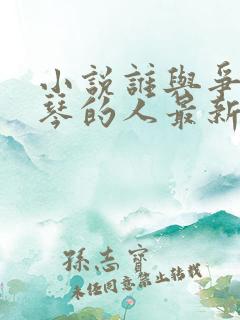 小説誰與爭
琴的人最新
孫志寶
未经同意禁止转载